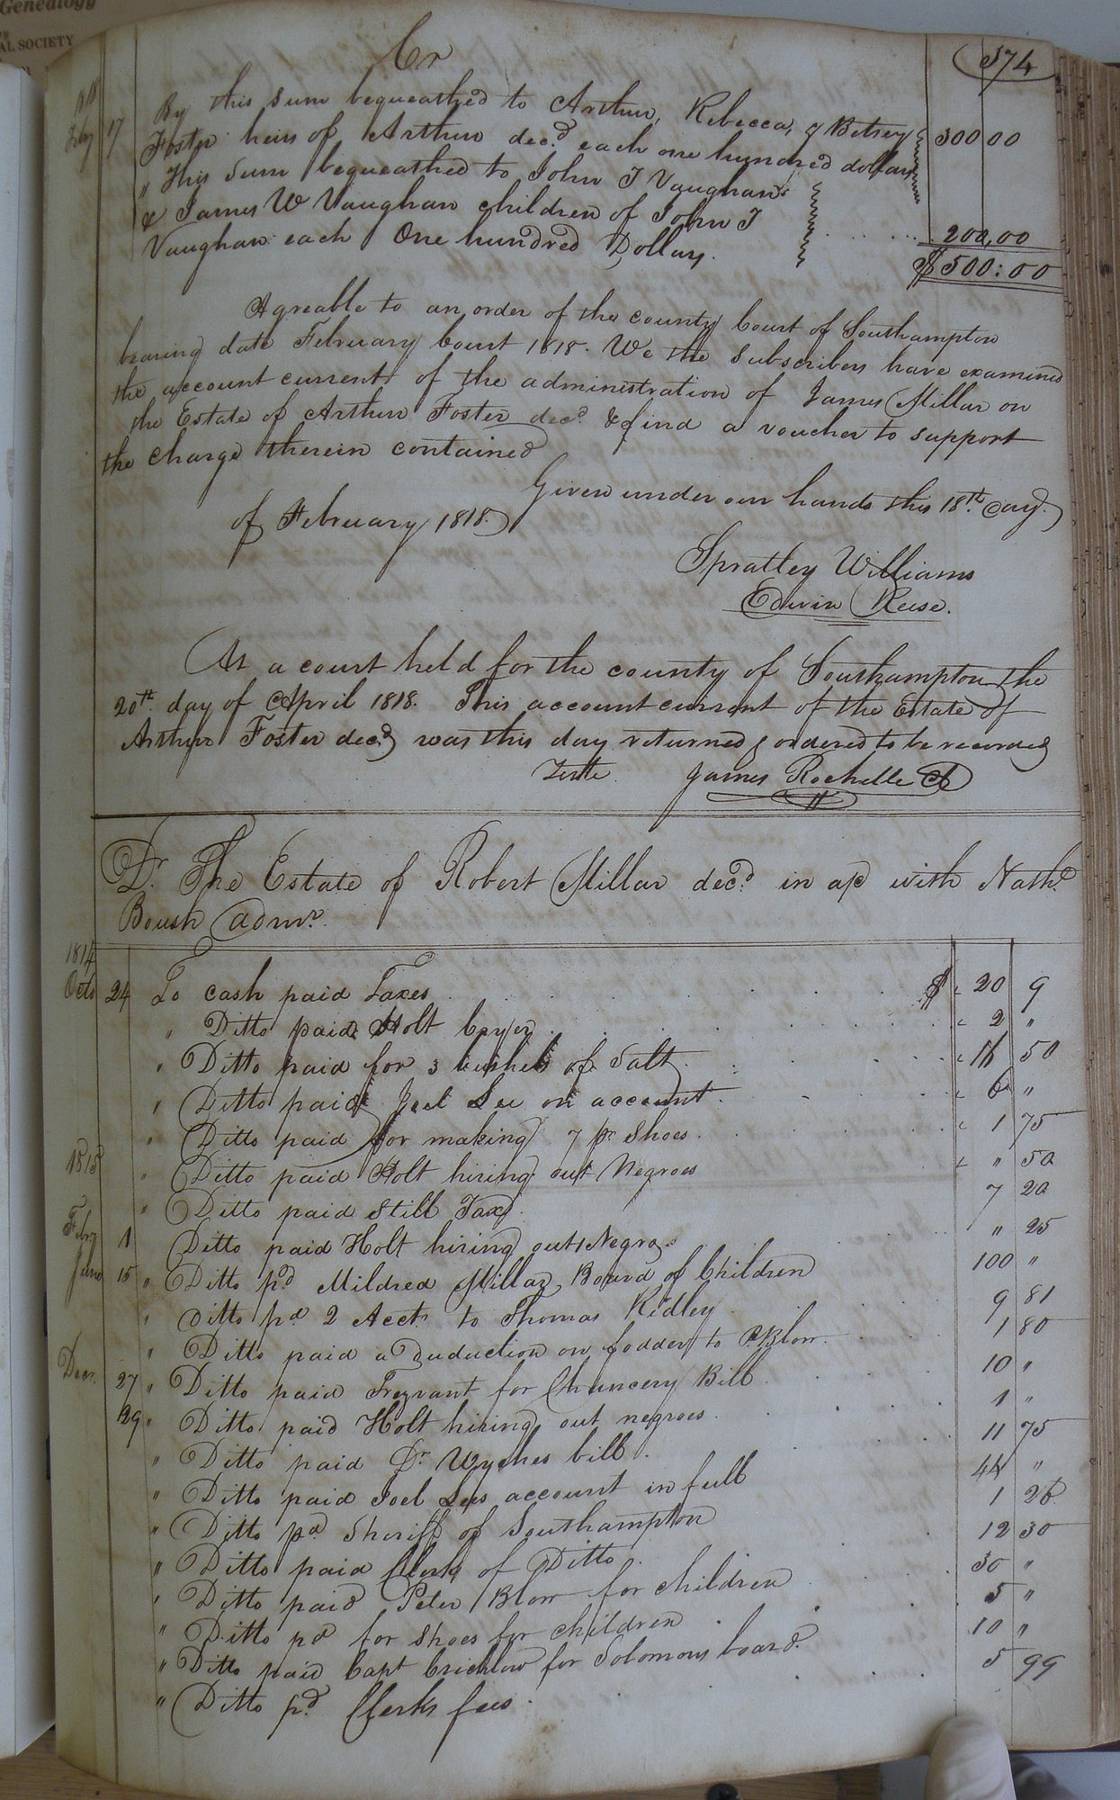 Genealogy
AL SOCIETY
Cr
574
1818
Feby 17 By this sum bequeathed to Arthur, Rebecca, & Betsey
Foster heirs of Arthur decd. each one hundred dollars 300 00
" This Sum bequeathed to John T Vaughan
& James W Vaughan children of John T
Vaughan each One hundred Dollars. 200,00
$500:00
Agreable to an order of the county Court of Southampton
bearing date February Court 1818. We the Subscribers have examined
the account current of the administration of James Millar on
the Estate of Arthur Foster decd. & find a voucher to support
the charge therein contained
Given under our hands this 18th day
of February 1818.
Spratley Williams
Edwin Reese.
At a court held for the county of Southampton the
20th. day of April 1818. This account current of the Estate of
Arthur Foster decd. was this day returned & ordered to be recorded
Teste James Rochelle Cl
Dr. The Estate of Robert Millar decd. in a/c with Nathl.
Boush admr.
1814
Octo 24 To cash paid Taxes $ 20 9
" Ditto paid Holt 2 "
" Ditto paid for 3 bushels of Salt 16 50
" Ditto paid Joel Lee on account 6 "
" Ditto paid for making 7 pr Shoes 1 75
1815 " Ditto paid Holt hiring out Negroes " 50
" Ditto paid Still Tax 7 20
Feby 1 Ditto paid Holt hiring out Negroes " 25
June 15 " Ditto pd Mildred Millar Board of Children 100 "
" Ditto pd 2 Accts to Thomas Ridley 9 81
" Ditto paid a Deduction on fodder to Blow 1 80
Decr. 27 " Ditto paid for Chancery Bill 10 "
29 " Ditto paid Holt hiring out negroes 1 "
" Ditto paid Dr Wyches bill 11 75
" Ditto paid Joel Lees account in full 44 "
" Ditto pd Sheriff of Southampton 1 26
" Ditto paid Clerk of Ditto 12 30
" Ditto paid Peter Blow for children 30 "
" Ditto pd for shoes for children 5 "
" Ditto paid Capt Crichlow for Solomons board 10 "
" Ditto pd. Clerks fees 5 99